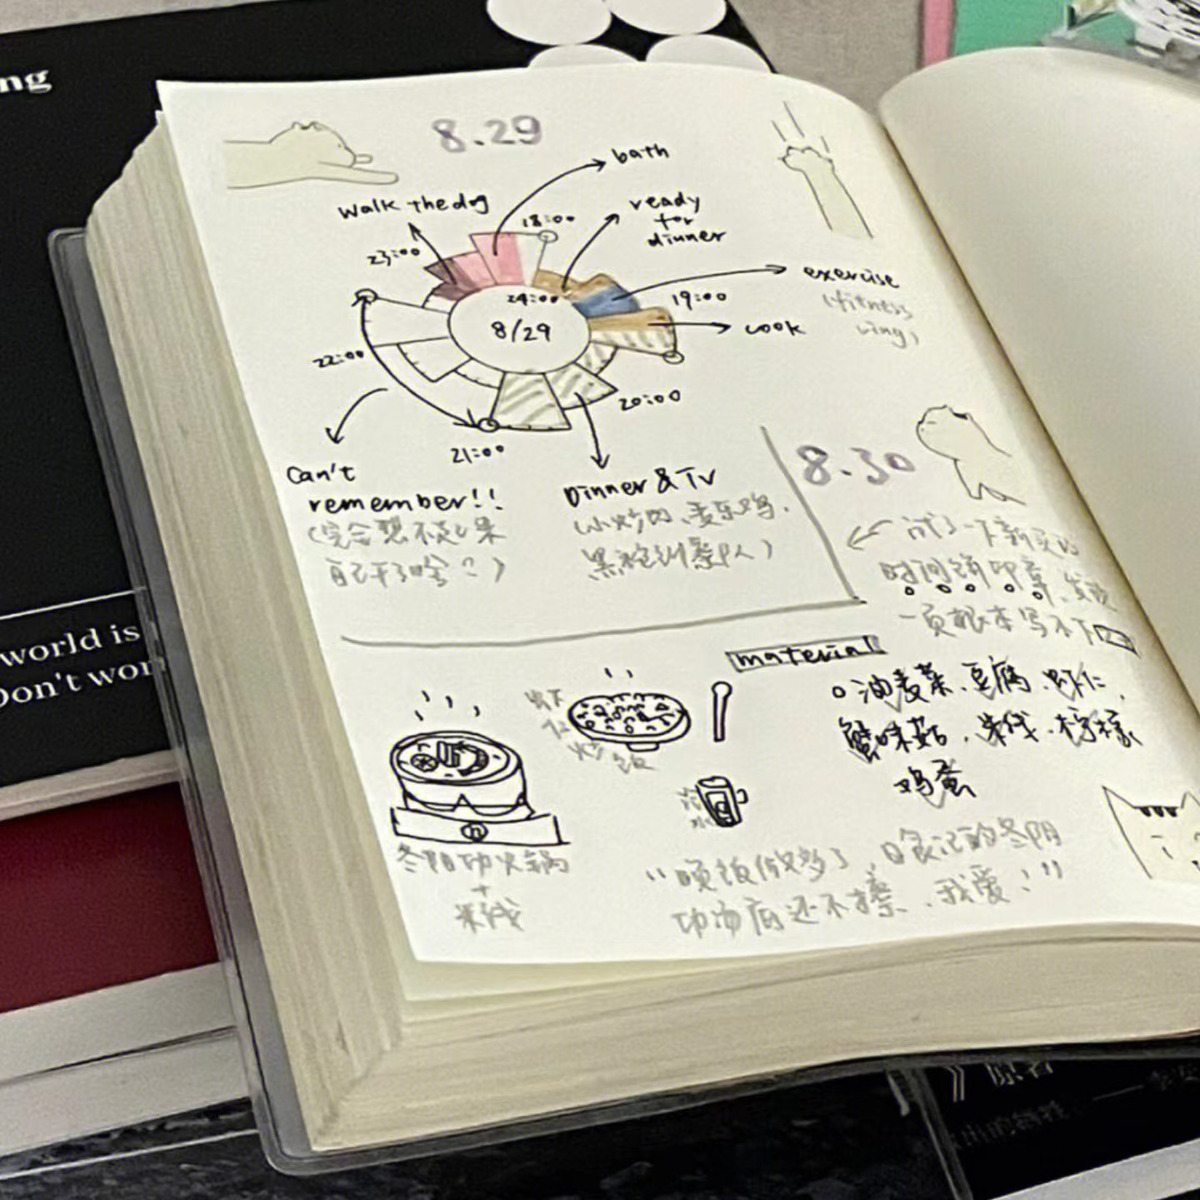 ng
8.29
bath
walk the dog
18:00
ready
for
dinner
23:00
exercise
(fitness
19:00
24:00
8/29
cook
22:00
20:00
21:00
Can't
remember!!
(完全想不起来
自己干了啥?)
Dinner & TV
(小炒肉、麦乐鸡、
8.30
试了一下新买的
时间饼印章、发现
一页根本写不下
world is
Don't wor
material
油麦菜、豆腐、虾仁、
蟹味菇、米线、柠檬
鸡蛋
炒饭
冰
冬阴功火锅
+
米线
“晚饭做多了,日食记的冬阴
功汤底还不错、我爱!”